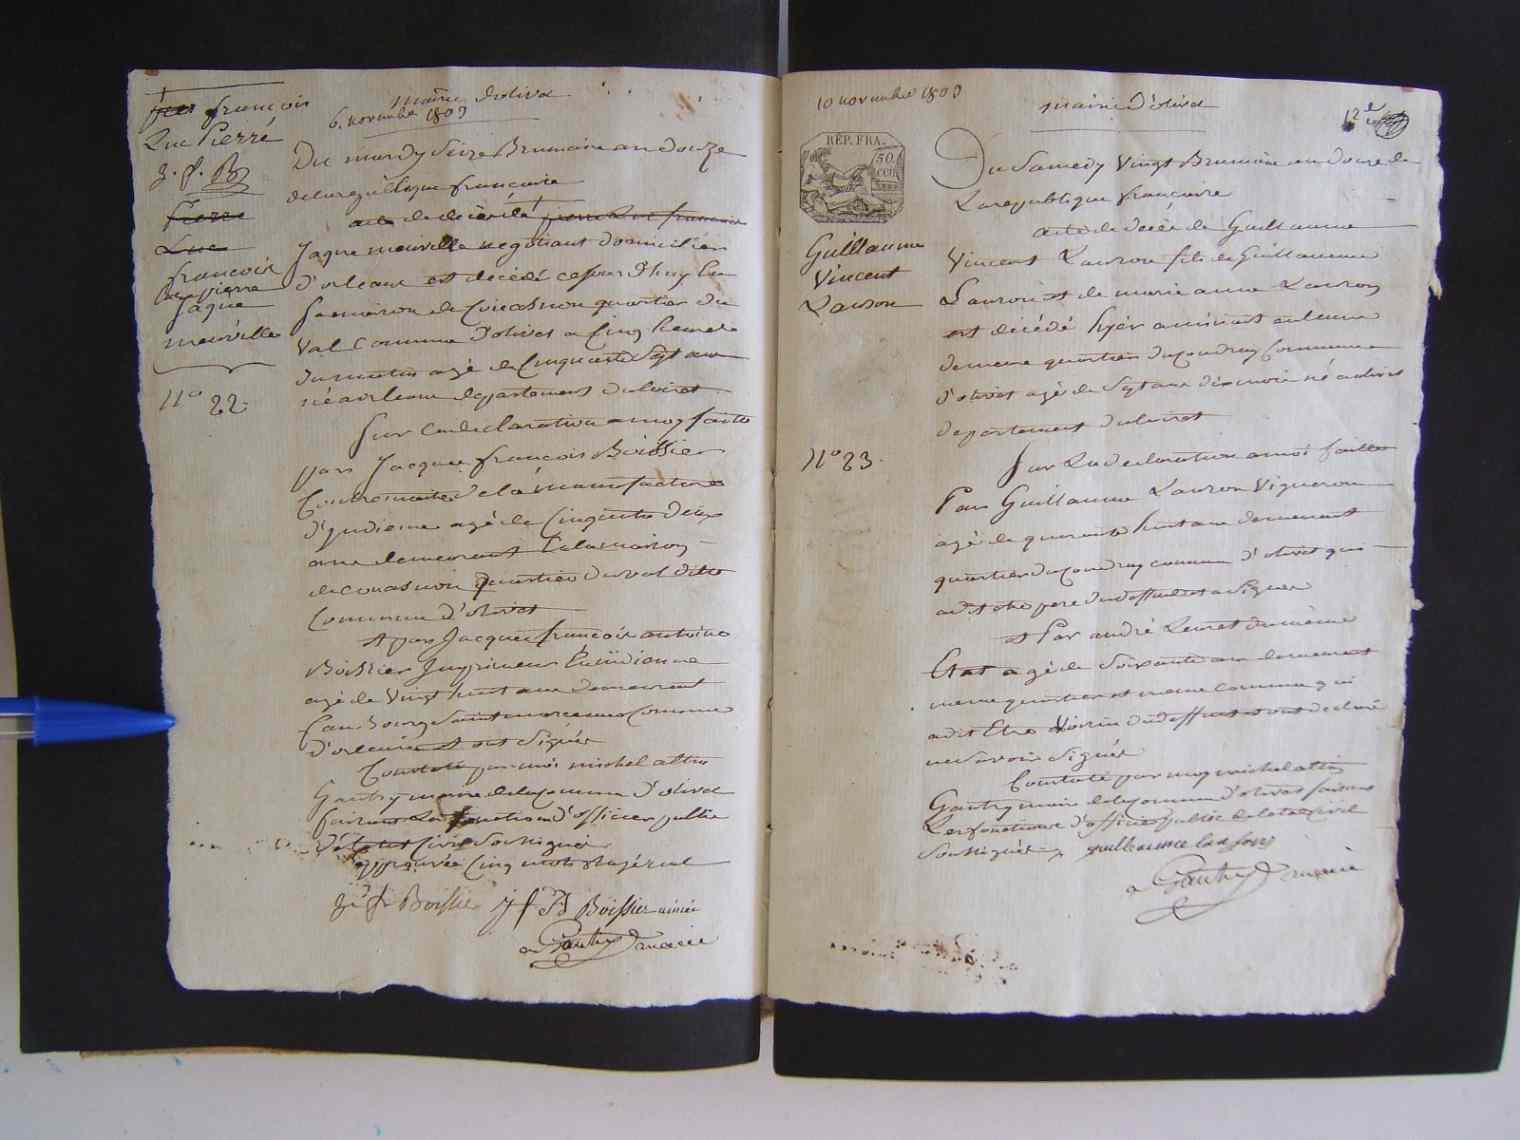 françois
Luc Pierre
J. f. B
pierre
Luc
françois
Luc pierre
Jaque
meuville
N° 22.
mairie d'olivet
6. novembre 1803
Du mardy Seize Brumaire an douze
de la republique francaise
acte de décès de pierre Luc francois
Jaque meuville negotiant domicilié
d'orleans est décédé ce jour d'huy En
sa maison de Couasnon quartier du
val Commune d'olivet a Cinq heures
du matin agé de Cinquante Sept ans
né a orleans departement du loiret
Sur la declaration a moy faitte
par Jacques françois Boissier
Contremaitre de la manufacture
d'yndienne agé de Cinquante deux
ans demeurant En la maison
de Couasnon quartier du val ditte
Commune d'olivet
et par Jacques françois antoine
Boissier Imprimeur En indienne
agé de Vingt huit ans demeurant
fau Bourg Saint marceau Commune
d'orleans et ont Signés
Constaté par moi michel altin
Gautry maire de la Commune d'olivet
faisant Les fonctions d'officier public
de l'etat Civil Soussigné
approuvée Cinq mots
J. f. Boissier J f B Boissier ainée
a Gautry maire
10 novembre 1803
mairie d'olivet
12e
RÉP. FRA.
50.
CEN
Guillaume
Vincent
Lauson
N° 23.
Du Samedy Vingt Brumaire an douze de
La republique françoise
acte de decès de Guillaume
Vincent Lauson fils de Guillaume
Lauson et de marie anne Lauson
est décédé hyer a minuit en leur
demeure quartier du poudroy Commune
d'olivet agé de Sept ans dix mois né a olivet
departement du loiret
Sur La declaration a moi faitte
Par Guillaume Lauson Vigneron
agé de quarante huit ans demeurant
quartier du poudroy commune d'olivet qui
a dit etre pere du deffunt et a Signer
et Par andré Lenret du même
Etat agé de Soixante ans demeurant
meme quartier et meme commune qui
a dit Etre Voisin du deffunt et ont declaré
ne Savoir Signer
Constaté par moy michel altin
Gautry maire de la Commune d'olivet faisant
Les fonctions d'officier public de l'etat Civil
Soussigné guillaume lauson
a Gautry maire